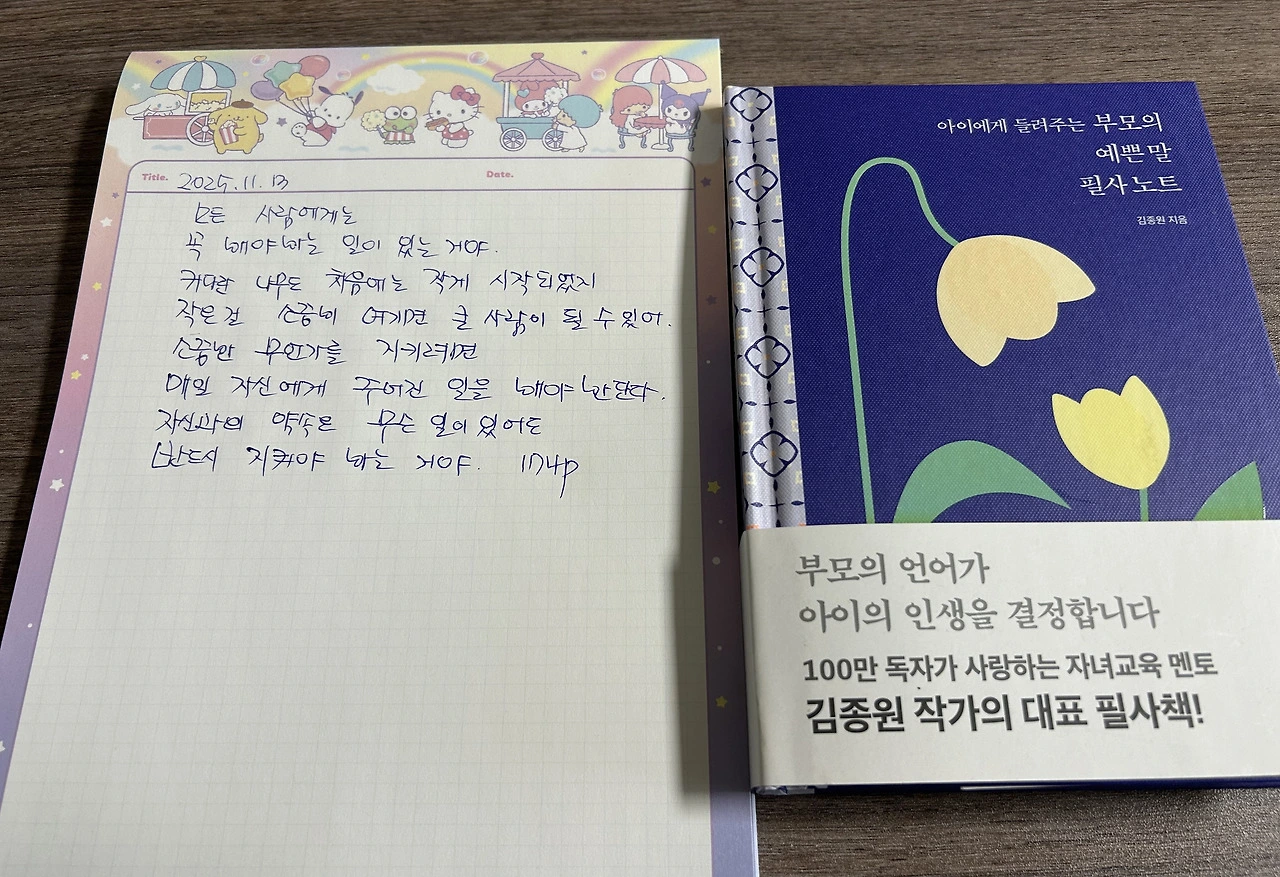 Title. 2025.11.13
Date.
모든 사람에게는
꼭 해야하는 일이 있는 거야.
커다란 나무도 처음에는 작게 시작되었지
작은걸 소중히 여기면 큰 사람이 될 수 있어.
소중한 무언가를 지키려면
매일 자신에게 주어진 일을 해야 한단다.
자신과의 약속은 무슨 일이 있어도
반드시 지켜야 하는 거야. 174p
아이에게 들려주는 부모의
예쁜 말
필사 노트
김종원 지음
부모의 언어가
아이의 인생을 결정합니다
100만 독자가 사랑하는 자녀교육 멘토
김종원 작가의 대표 필사책!